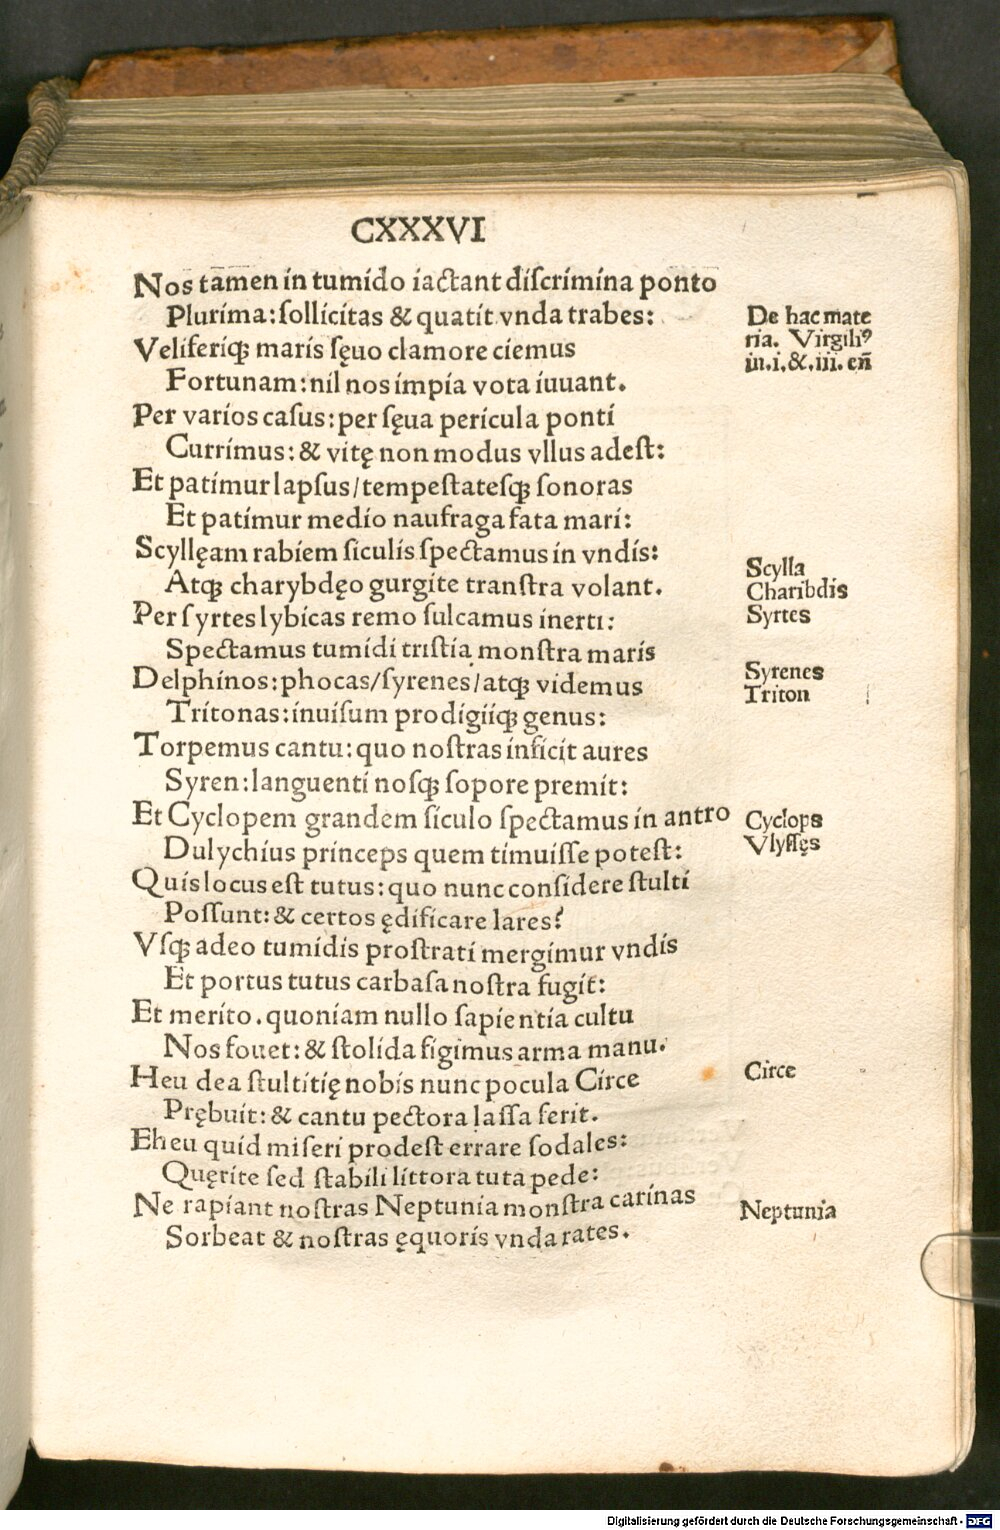 CXXXVI
Nos tamen in tumido iactant diſcrimina ponto
Plurima: ſollicitas & quatit vnda trabes:
De hac mate
ria. Virgiliꝰ
in.i.&.iii. en̄
Veliferiqꝫ maris ſęuo clamore ciemus
Fortunam: nil nos impia vota iuuant.
Per varios caſus: per ſęua pericula ponti
Currimus: & vitę non modus vllus adeſt:
Et patimur lapſus/tempeſtateſqꝫ ſonoras
Et patimur medio naufraga fata mari:
Scyllęam rabiem ſiculis ſpectamus in vndis:
Scylla
Atqꝫ charybdęo gurgite tranſtra volant.
Charibdis
Per ſyrtes lybicas remo ſulcamus inerti:
Syrtes
Spectamus tumidi triſtia monſtra maris
Delphinos: phocas/ſyrenes/atqꝫ videmus
Syrenes
Triton
Tritonas: inuiſum prodigiiqꝫ genus:
Torpemus cantu: quo noſtras inficit aures
Syren: languenti noſqꝫ ſopore premit:
Et Cyclopem grandem ſiculo ſpectamus in antro
Cyclops
Dulychius princeps quem timuiſſe poteſt:
Vlyſſęs
Quis locus eſt tutus: quo nunc conſidere ſtulti
Poſſunt: & certos ędificare lares?
Vſqꝫ adeo tumidis proſtrati mergimur vndis
Et portus tutus carbaſa noſtra fugit:
Et merito. quoniam nullo ſapientia cultu
Nos fouet: & ſtolida figimus arma manu.
Heu dea ſtultitię nobis nunc pocula Circe
Circe
Prębuit: & cantu pectora laſſa ferit.
Eheu quid miſeri prodeſt errare ſodales:
Quęrite ſed ſtabili littora tuta pede:
Ne rapiant noſtras Neptunia monſtra carinas
Neptunia
Sorbeat & noſtras ęquoris vnda rates.
Digitalisierung gefördert durch die Deutsche Forschungsgemeinschaft - DFG